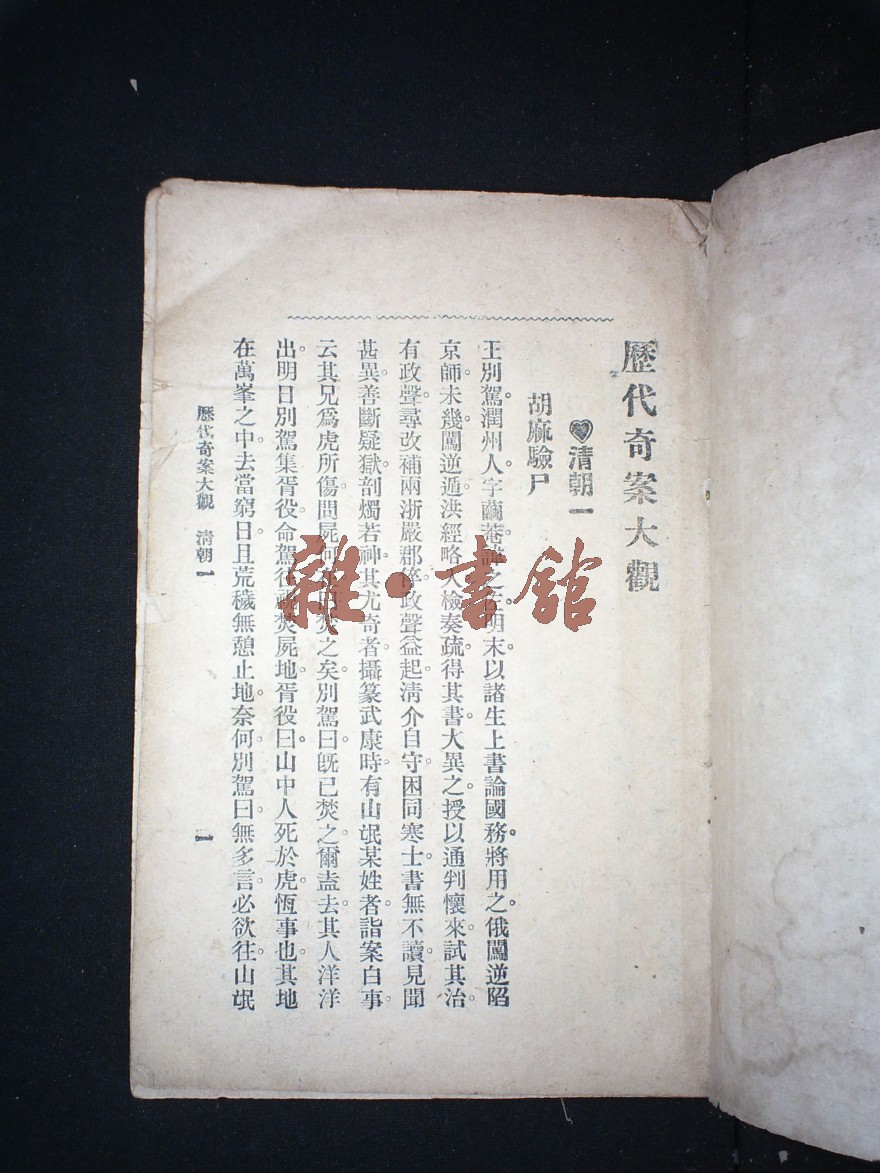 歷代奇案大觀
清朝一
胡麻驗尸
王別駕。潤州人。字繭菴。諱之 明末以諸生上書論國務。將用之。俄闖逆陷
京師。未幾闖逆遁。洪經略入檢奏疏。得其書。大異之。授以通判。懷來試其治。
有政聲。尋改補兩浙嚴郡倅。政聲益起。淸介自守。困同寒士。書無不讀。見聞
甚異。善斷疑獄。剖燭若神。其尤奇者。攝篆武康時。有山氓某姓者。詣案白事。
云其兄爲虎所傷。問屍何 曰焚之矣。別駕曰。旣已焚之。爾盍去。其人洋洋
出。明日別駕集胥役。命駕往 焚屍地。胥役曰。山中人死於虎。恆事也。其地
在萬峯之中。去當窮日。且荒穢無憩止地。奈何。別駕曰。無多言。必欲往。山氓
歷代奇案大觀 淸朝一 一
雜·書館